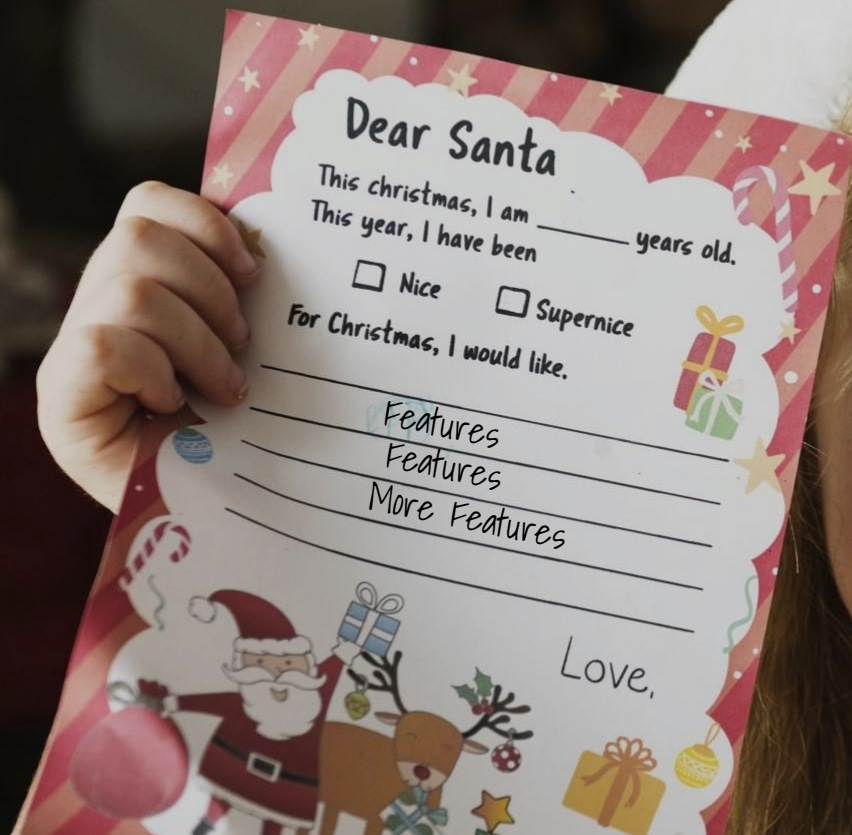 Dear Santa
This christmas, I am ______ years old.
This year, I have been
Nice Supernice
For Christmas, I would like.
Features
Features
More Features
Love,